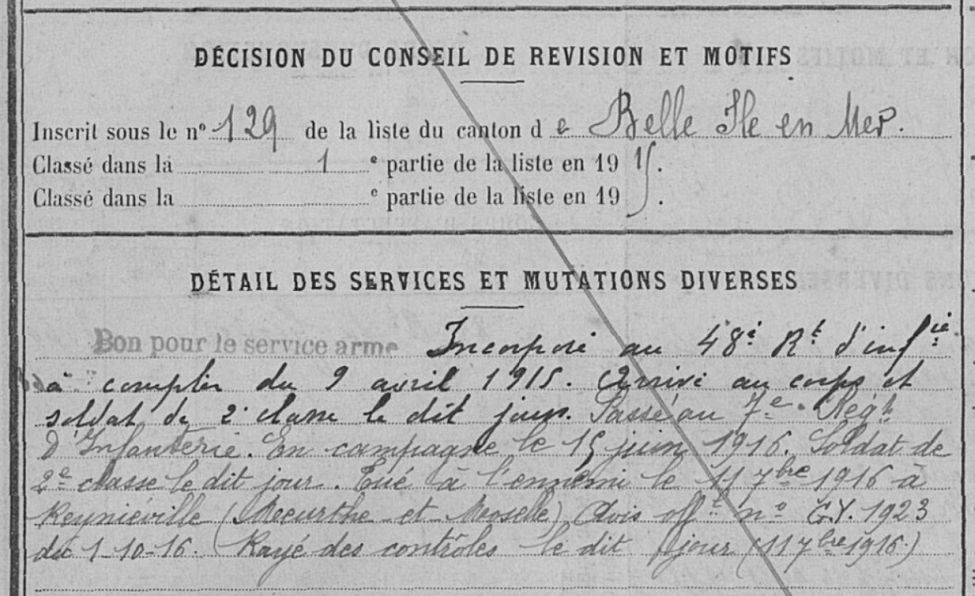 DÉCISION DU CONSEIL DE REVISION ET MOTIFS
Inscrit sous le nº 129 de la liste du canton de Belle Ile en Mer.
Classé dans la 1 e partie de la liste en 19 15.
Classé dans la e partie de la liste en 19 .
DÉTAIL DES SERVICES ET MUTATIONS DIVERSES
Bon pour le service armé Incorporé au 48e Rt d'infie
à compter du 9 avril 1915. Arrivé au corps et
soldat de 2e classe le dit jour. Passé au 7e Régt
d'Infanterie. En campagne le 15 juin 1916. Soldat de
2e classe le dit jour. Tué à l'ennemi le 11 7bre 1916 à
Reynieville (Meurthe et Moselle) Avis offel nº G.Y. 1923
du 1-10-16. Rayé des contrôles le dit jour (11 7bre 1916)